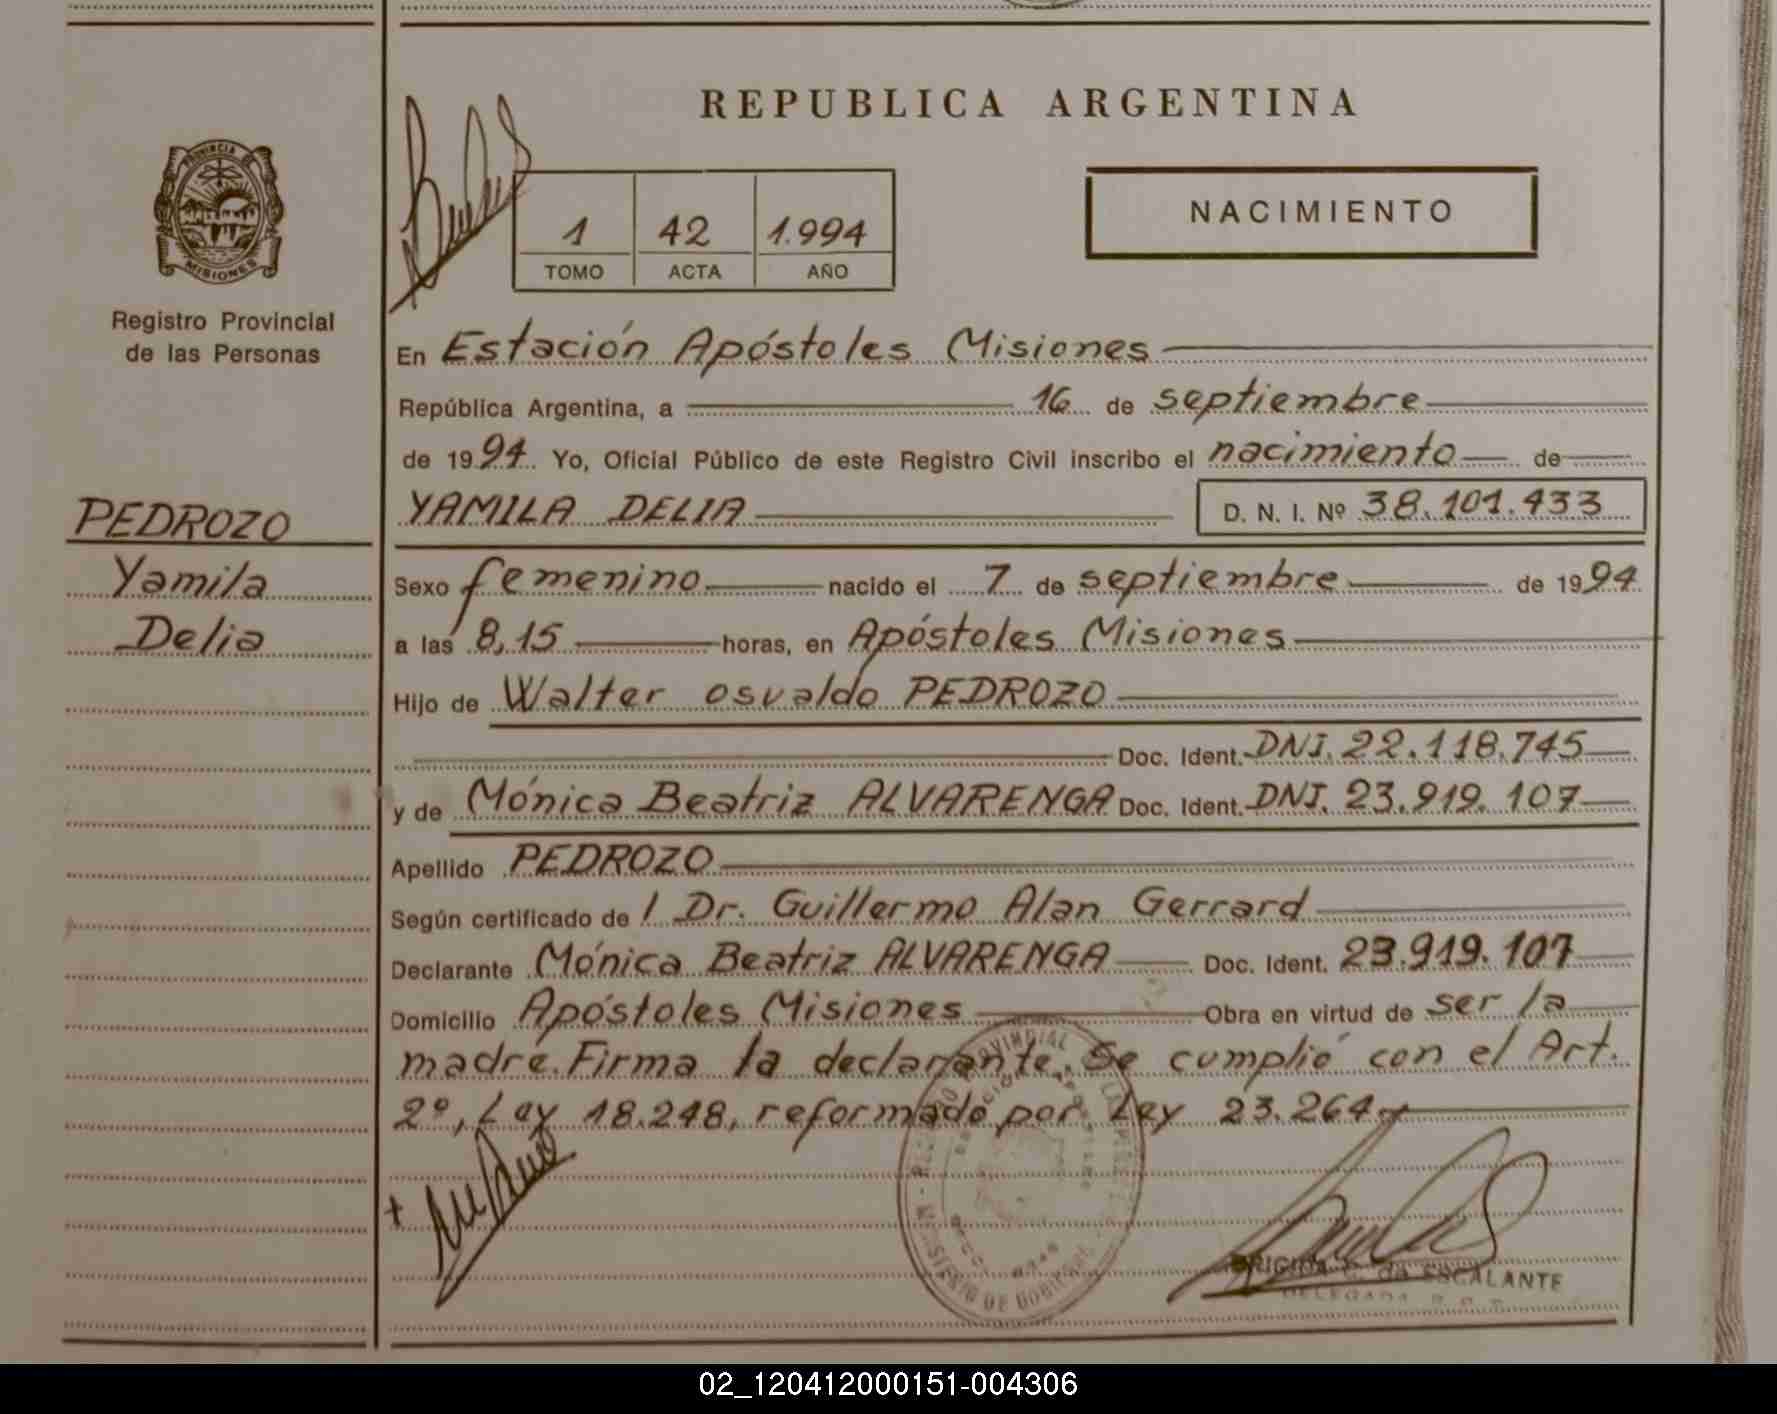 REPUBLICA ARGENTINA
PROVINCIA DE
MISIONES
Registro Provincial
de las Personas
1 42 1.994
TOMO ACTA AÑO
NACIMIENTO
En Estación Apóstoles Misiones
República Argentina, a 16 de septiembre
de 1994 Yo, Oficial Público de este Registro Civil inscribo el nacimiento de
YAMILA DELIA D. N. I. Nº 38.101.433
PEDROZO
Yamila
Delia
Sexo femenino nacido el 7 de septiembre de 1994
a las 8,15 horas, en Apóstoles Misiones
Hijo de Walter osvaldo PEDROZO
Doc. Ident. DNI. 22.118.745
y de Mónica Beatriz ALVARENGA Doc. Ident. DNI. 23.919.107
Apellido PEDROZO
Según certificado de l Dr. Guillermo Alan Gerrard
Declarante Mónica Beatriz ALVARENGA Doc. Ident. 23.919.107
Domicilio Apóstoles Misiones Obra en virtud de ser la
madre. Firma la declarante. Se cumplió con el Art.
2º, Ley 18.248, reformado por Ley 23.264.-
ESCALANTE
DELEGADA
02_120412000151-004306